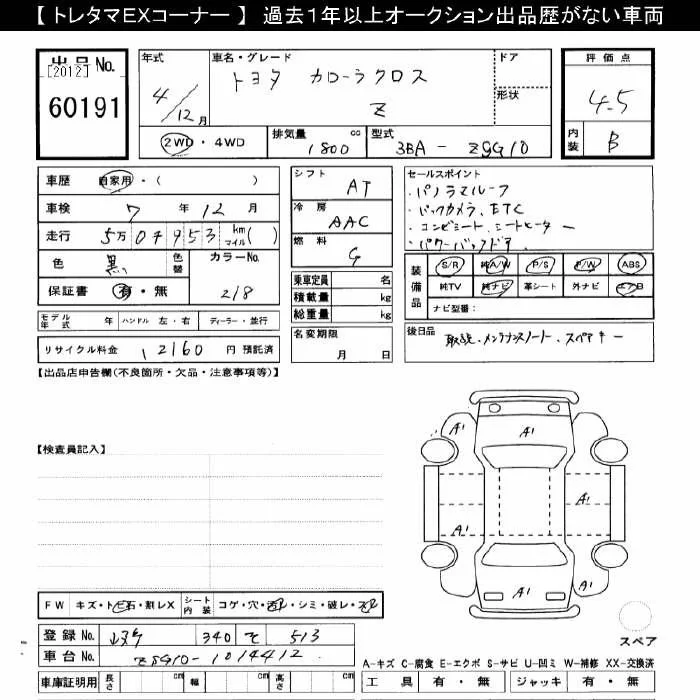 【 トレタマEXコーナー 】 過去1年以上オークション出品歴がない車両
出品No.
[2012]
60191
年式
4/12月
車名・グレード
トヨタ カローラクロス
Z
ドア
形状
評価点
4.5
内装
B
2WD・4WD
排気量
1800 cc
型式
3BA - ZSG10
車歴 自家用・( )
車検 7 年 12 月
走行 5万0千953 km マイル( )
色 黒 色替 カラーNo.
保証書 有・無 218
モデル年式 年 ハンドル 左・右 ディーラー・並行
リサイクル料金 12160 円 預託済
シフト AT
冷房 AAC
燃料 G
乗車定員 名
積載量 kg
総重量 kg
名変期限
月 日
セールスポイント
・パノラマルーフ
・バックカメラ、ETC
・コンビシート、シートヒーター
・パワーバックドア
装備品
S/R 純A/W P/S P/W ABS
純TV 純ナビ 革シート 外ナビ エアB
ナビ型番:
後日品
取説、メンテナンスノート、スペアキー
【出品店申告欄(不良箇所・欠品・注意事項等)】
【検査員記入】
A1
A1
A1
A1
A1
A1
FW キズ・トビ石・割レX シート内装 コゲ・穴・汚レ・シミ・破レ・
登録No. 340 て 513
車台No. ZSG10-1014412
車庫証明用 長さ cm 幅 cm 高さ cm
スペア
A-キズ C-腐食 E-エクボ S-サビ U-凹ミ W-補修 XX-交換済
工具 有・無 ジャッキ 有・無